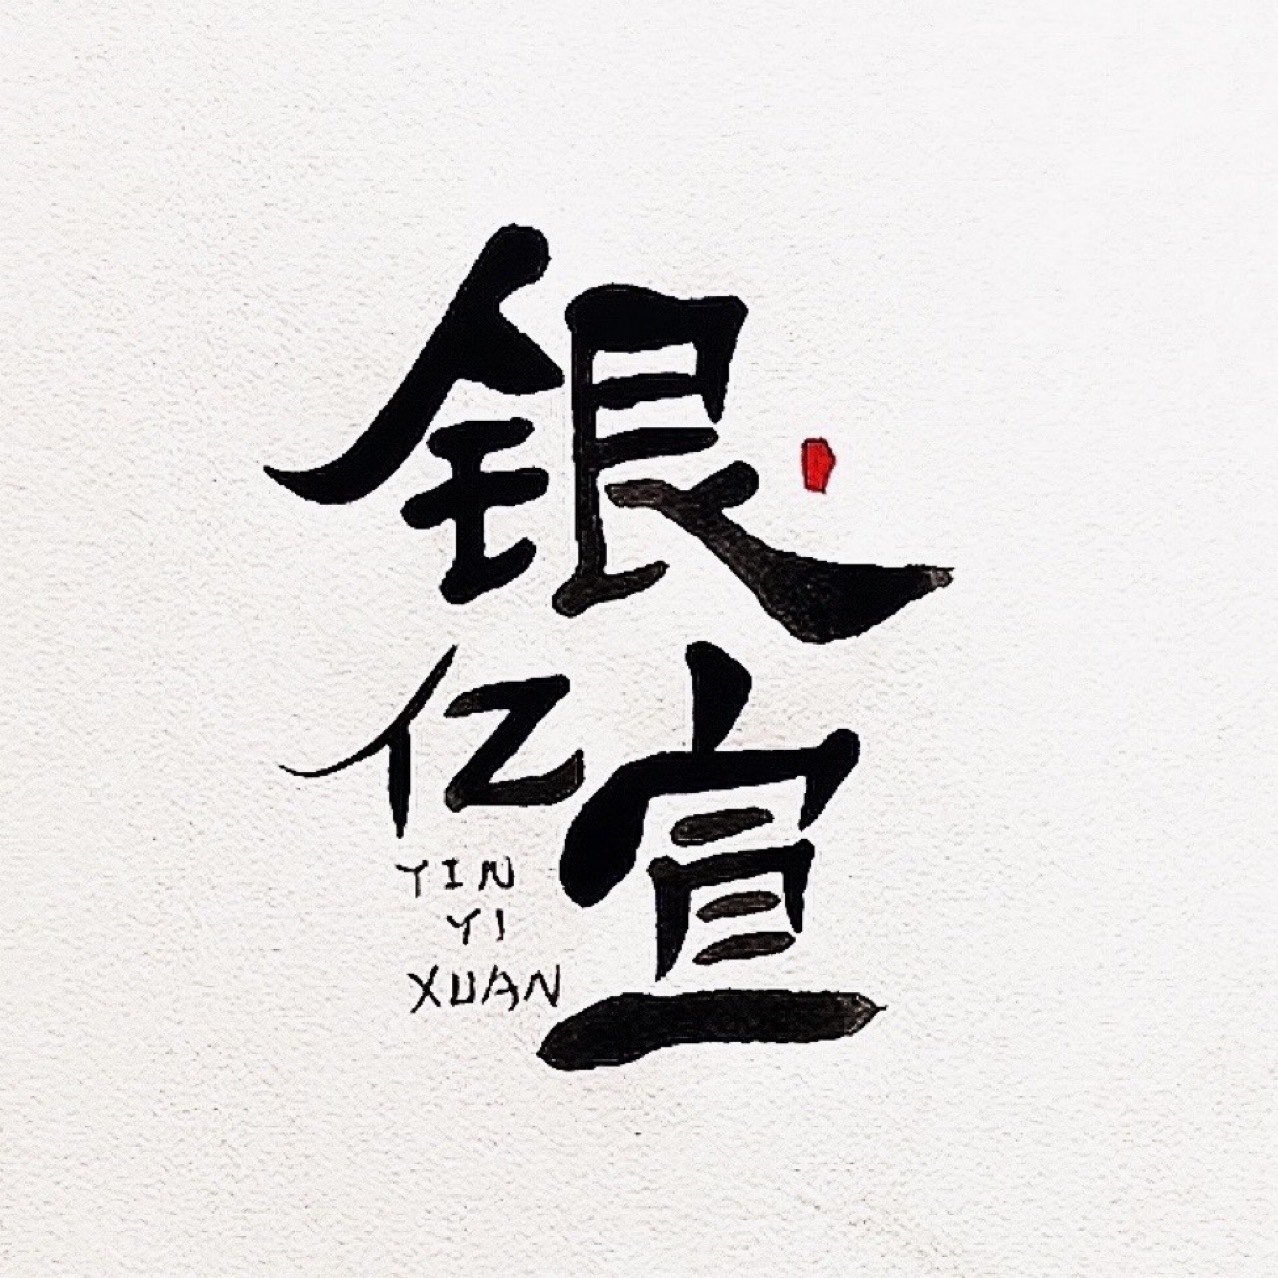 银
亿宣
YIN
YI
XUAN